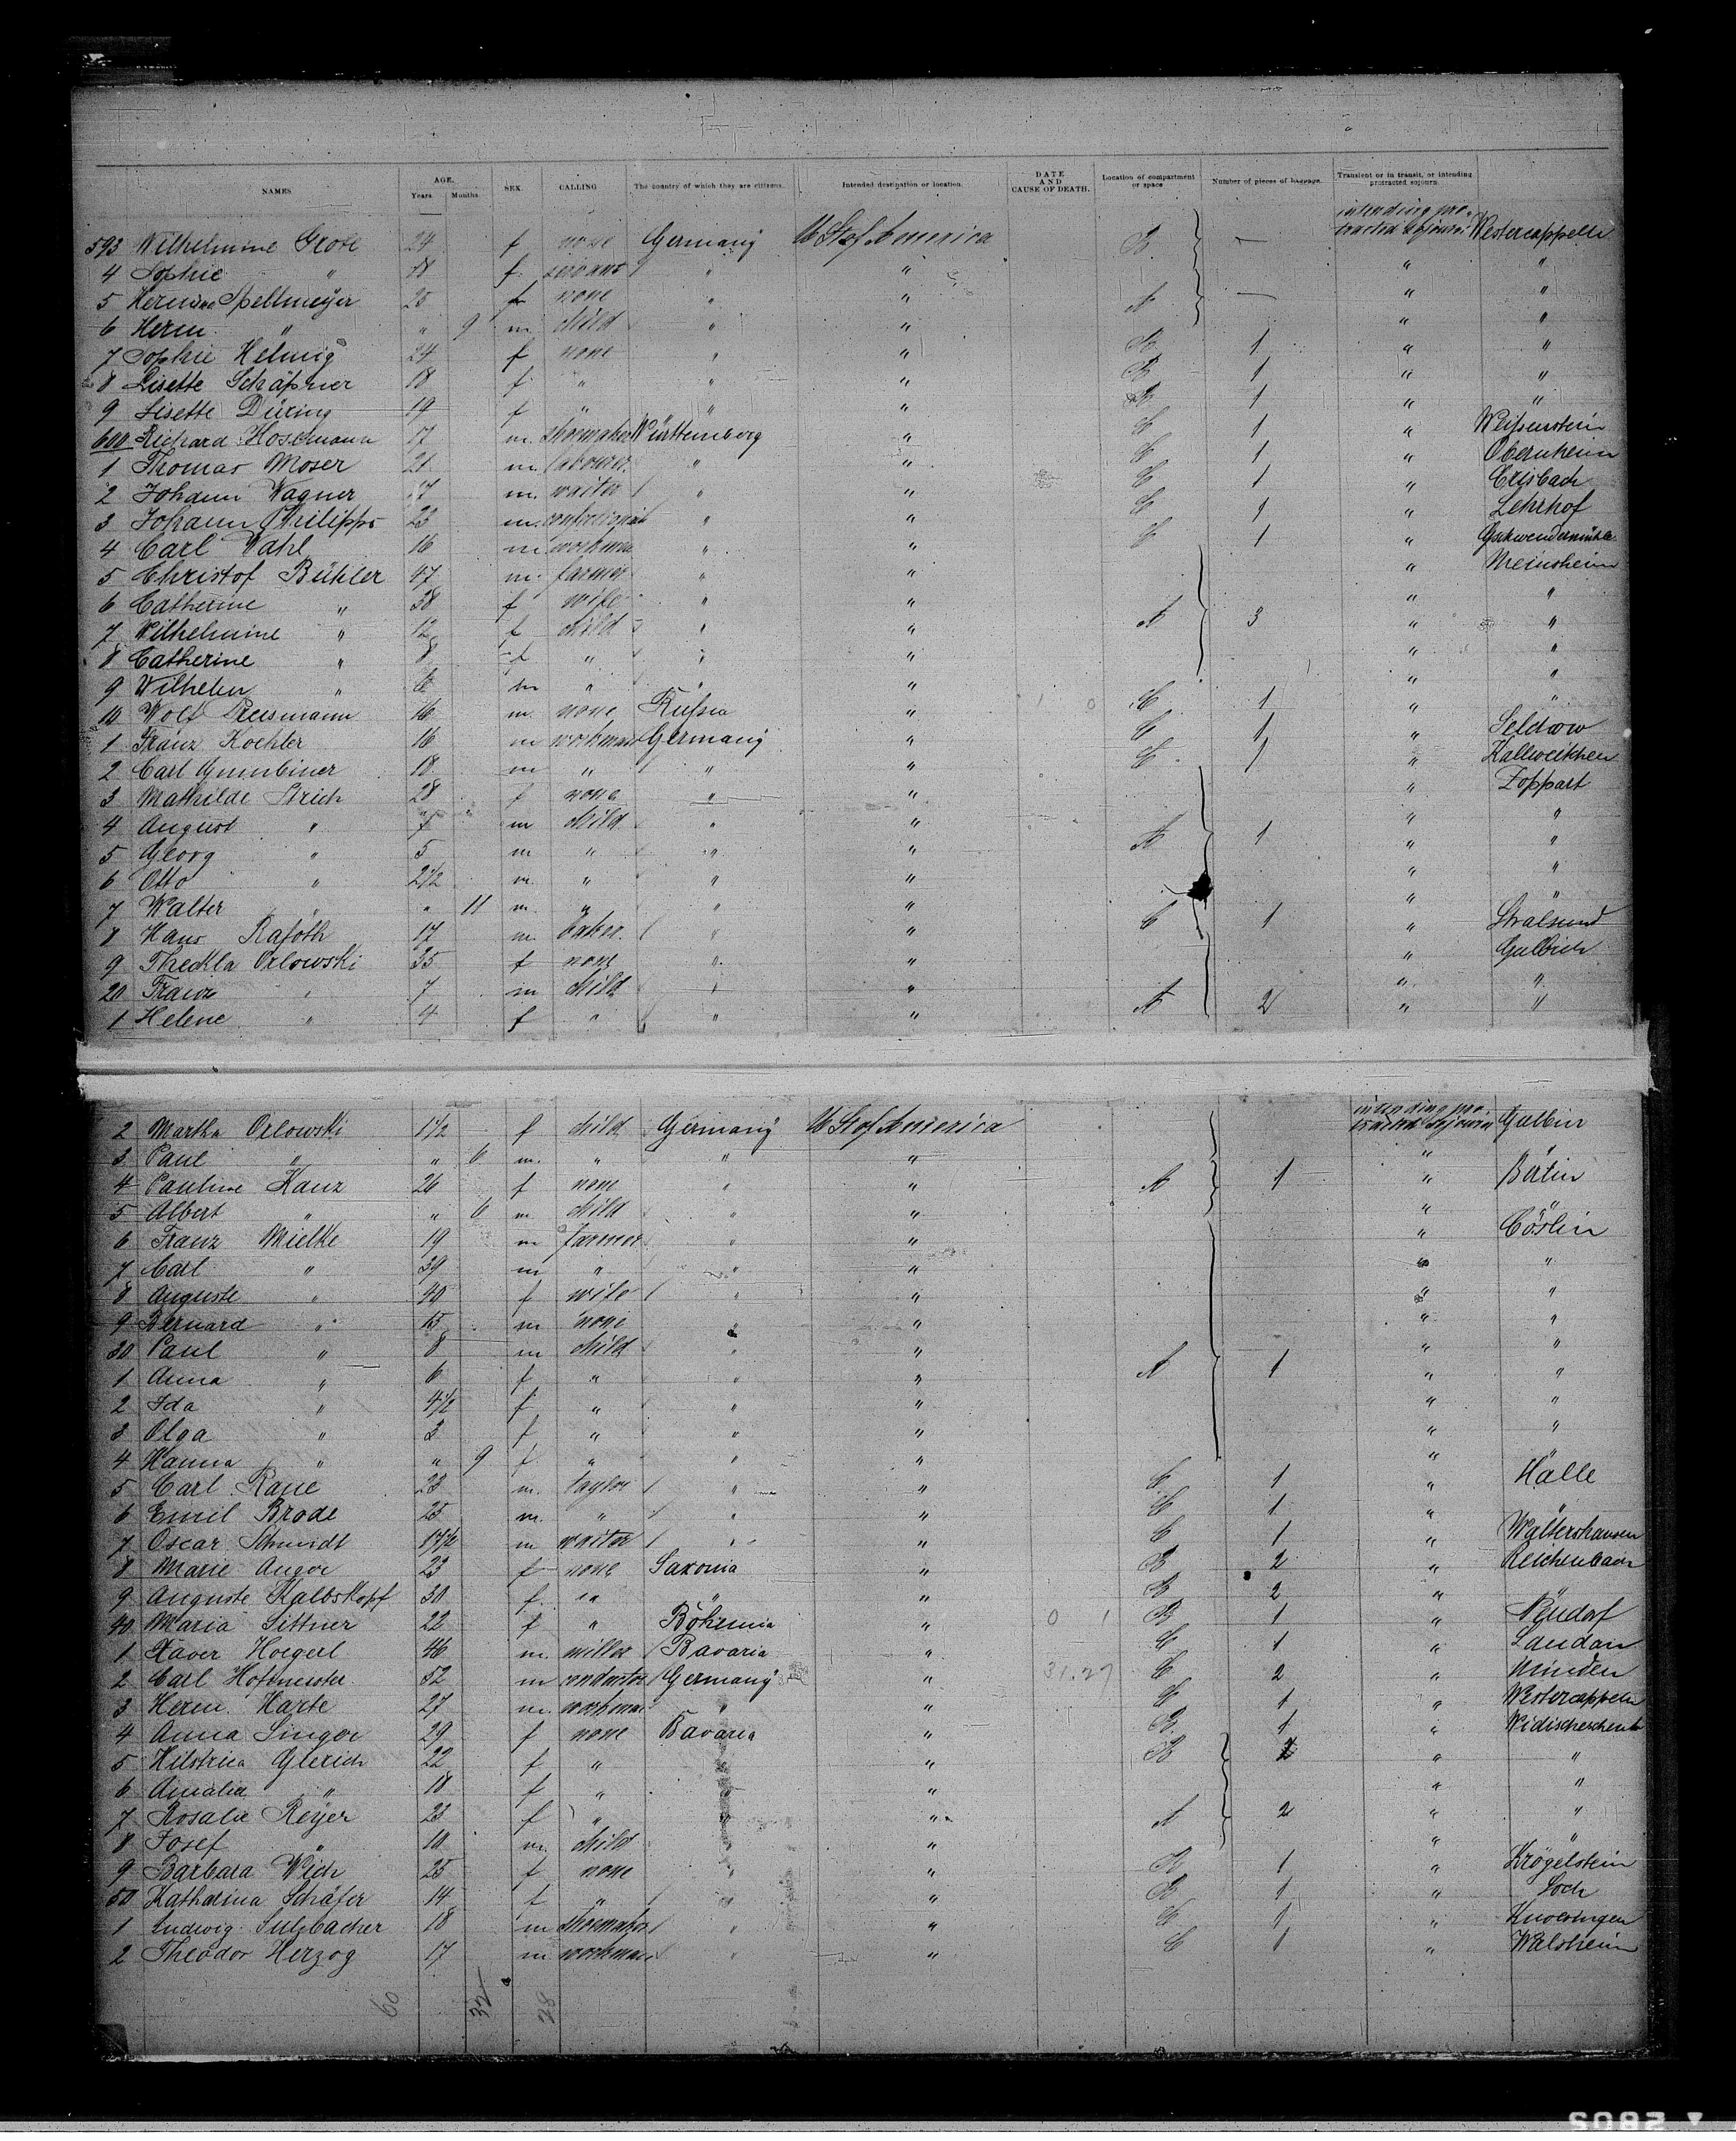 NAMES AGE. Years. Months. SEX. CALLING The country of which they are citizens. Intended destination or location. DATE AND CAUSE OF DEATH. Location of compartment or space Number of pieces of baggage. Transient or in transit, or intending protracted sojourn.
593 Wilhelmine Grote 24 f none Germany U St of America B — intending protracted sojourn Westercappeln
4 Sophie " 18 f servant " " " "
5 Spellmeyer 25 f none " " A — " "
6 Herm. " " 9 m child " " " "
7 Sophie Helmig 24 f none " " B 1 " "
8 Lisette Schäpner 18 f " " " B 1 " "
9 Lisette Düring 19 f " " " B 1 " "
600 Richard Hosemann 17 m shoemaker Württemberg " C 1 " Weißenstein
1 Thomas Moser 21 m labourer " " C 1 " Obernheim
2 Johann Wagner 17 m waiter " " C 1 " Erlsbach
3 Johann Philipps 23 m " " C 1 " Lehrhof
4 Carl Vahl 16 m workman " " C 1 "
5 Christof Bühler 47 m farmer " " "
6 Catherine " 38 f wife " " " "
7 Wilhelmine " 12 f child " " A 3 " "
8 Catherine " 8 f " " " " "
9 Wilhelm " 6 m " " " " "
10 Wolf 16 m none Rußia " C 1 " "
1 Franz Koehler 16 m workman Germany " C 1 " Seldrow
2 Carl Gumbiner 18 m " " " C 1 "
3 Mathilde Strich 28 f none " " " Zoppart
4 August " 7 m child " " " "
5 Georg " 5 m " " " A 1 " "
6 Otto " 2 1/2 m " " " " "
7 Walter " " 11 m " " " " "
8 Hans Rafoth 17 m baker " " C 1 " Stralsund
9 Theckla Orlowski 35 f none " " "
20 Franz " 7 m child " " " "
1 Helene " 4 f " " " A 2 " "
2 Martha Orlowski 1 1/2 f child Germany U St of America intending protracted sojourn Gulbin
3 Paul " " 6 m " " " "
4 Pauline Kanz 26 f none " " A 1 " Bütin
5 Albert " " 6 m child " " " "
6 Franz Mielke 19 m farmer " " " Cöslin
7 Carl " 39 m " " " " "
8 Auguste " 40 f wife " " " "
9 Bernard " 15 m none " " " "
30 Paul " 8 m child " " " "
1 Anna " 6 f " " " A 1 " "
2 Ida " 4 1/2 f " " " " "
3 Olga " 3 f " " " " "
4 Hanna " " 9 f " " " " "
5 Carl Raue 23 m taylor " " C 1 " Halle
6 Emil Brode 25 m " " " C 1 "
7 Oscar Schmidt 17 1/2 m waiter " " C 1 " Waltershausen
8 Marie Anger 23 f none Saxonia " B 2 " Reichenbach
9 Auguste Kalbskopf 30 f " " " B 2 "
40 Maria Sittner 22 f " Böhemia " B 1 "
1 Xaver Hoegerl 46 m miller Bavaria " C 1 " Landau
2 Carl Hofmeister 52 m conductor Germany " 31.27 C 2 " Minden
3 Herm. Harte 27 m workman " " C 1 " Westercappeln
4 Anna Singer 29 f none Bavaria " B 1 "
5 Glerich 22 f " " " B " "
6 Amalia " 18 f " " " " "
7 Rosalie Reyer 23 f " " " A 2 " "
8 Josef " 10 m child " " " "
9 Barbara Wich 25 f none " " B 1 " Krögelstein
50 Katharina Schäfer 14 f " " " B 1 " Loch
1 Ludwig Sulzbacher 18 m shoemaker " " C 1 " Knoeringen
2 Theodor Herzog 17 m workman " " C 1 " Walsheim
60 32 28